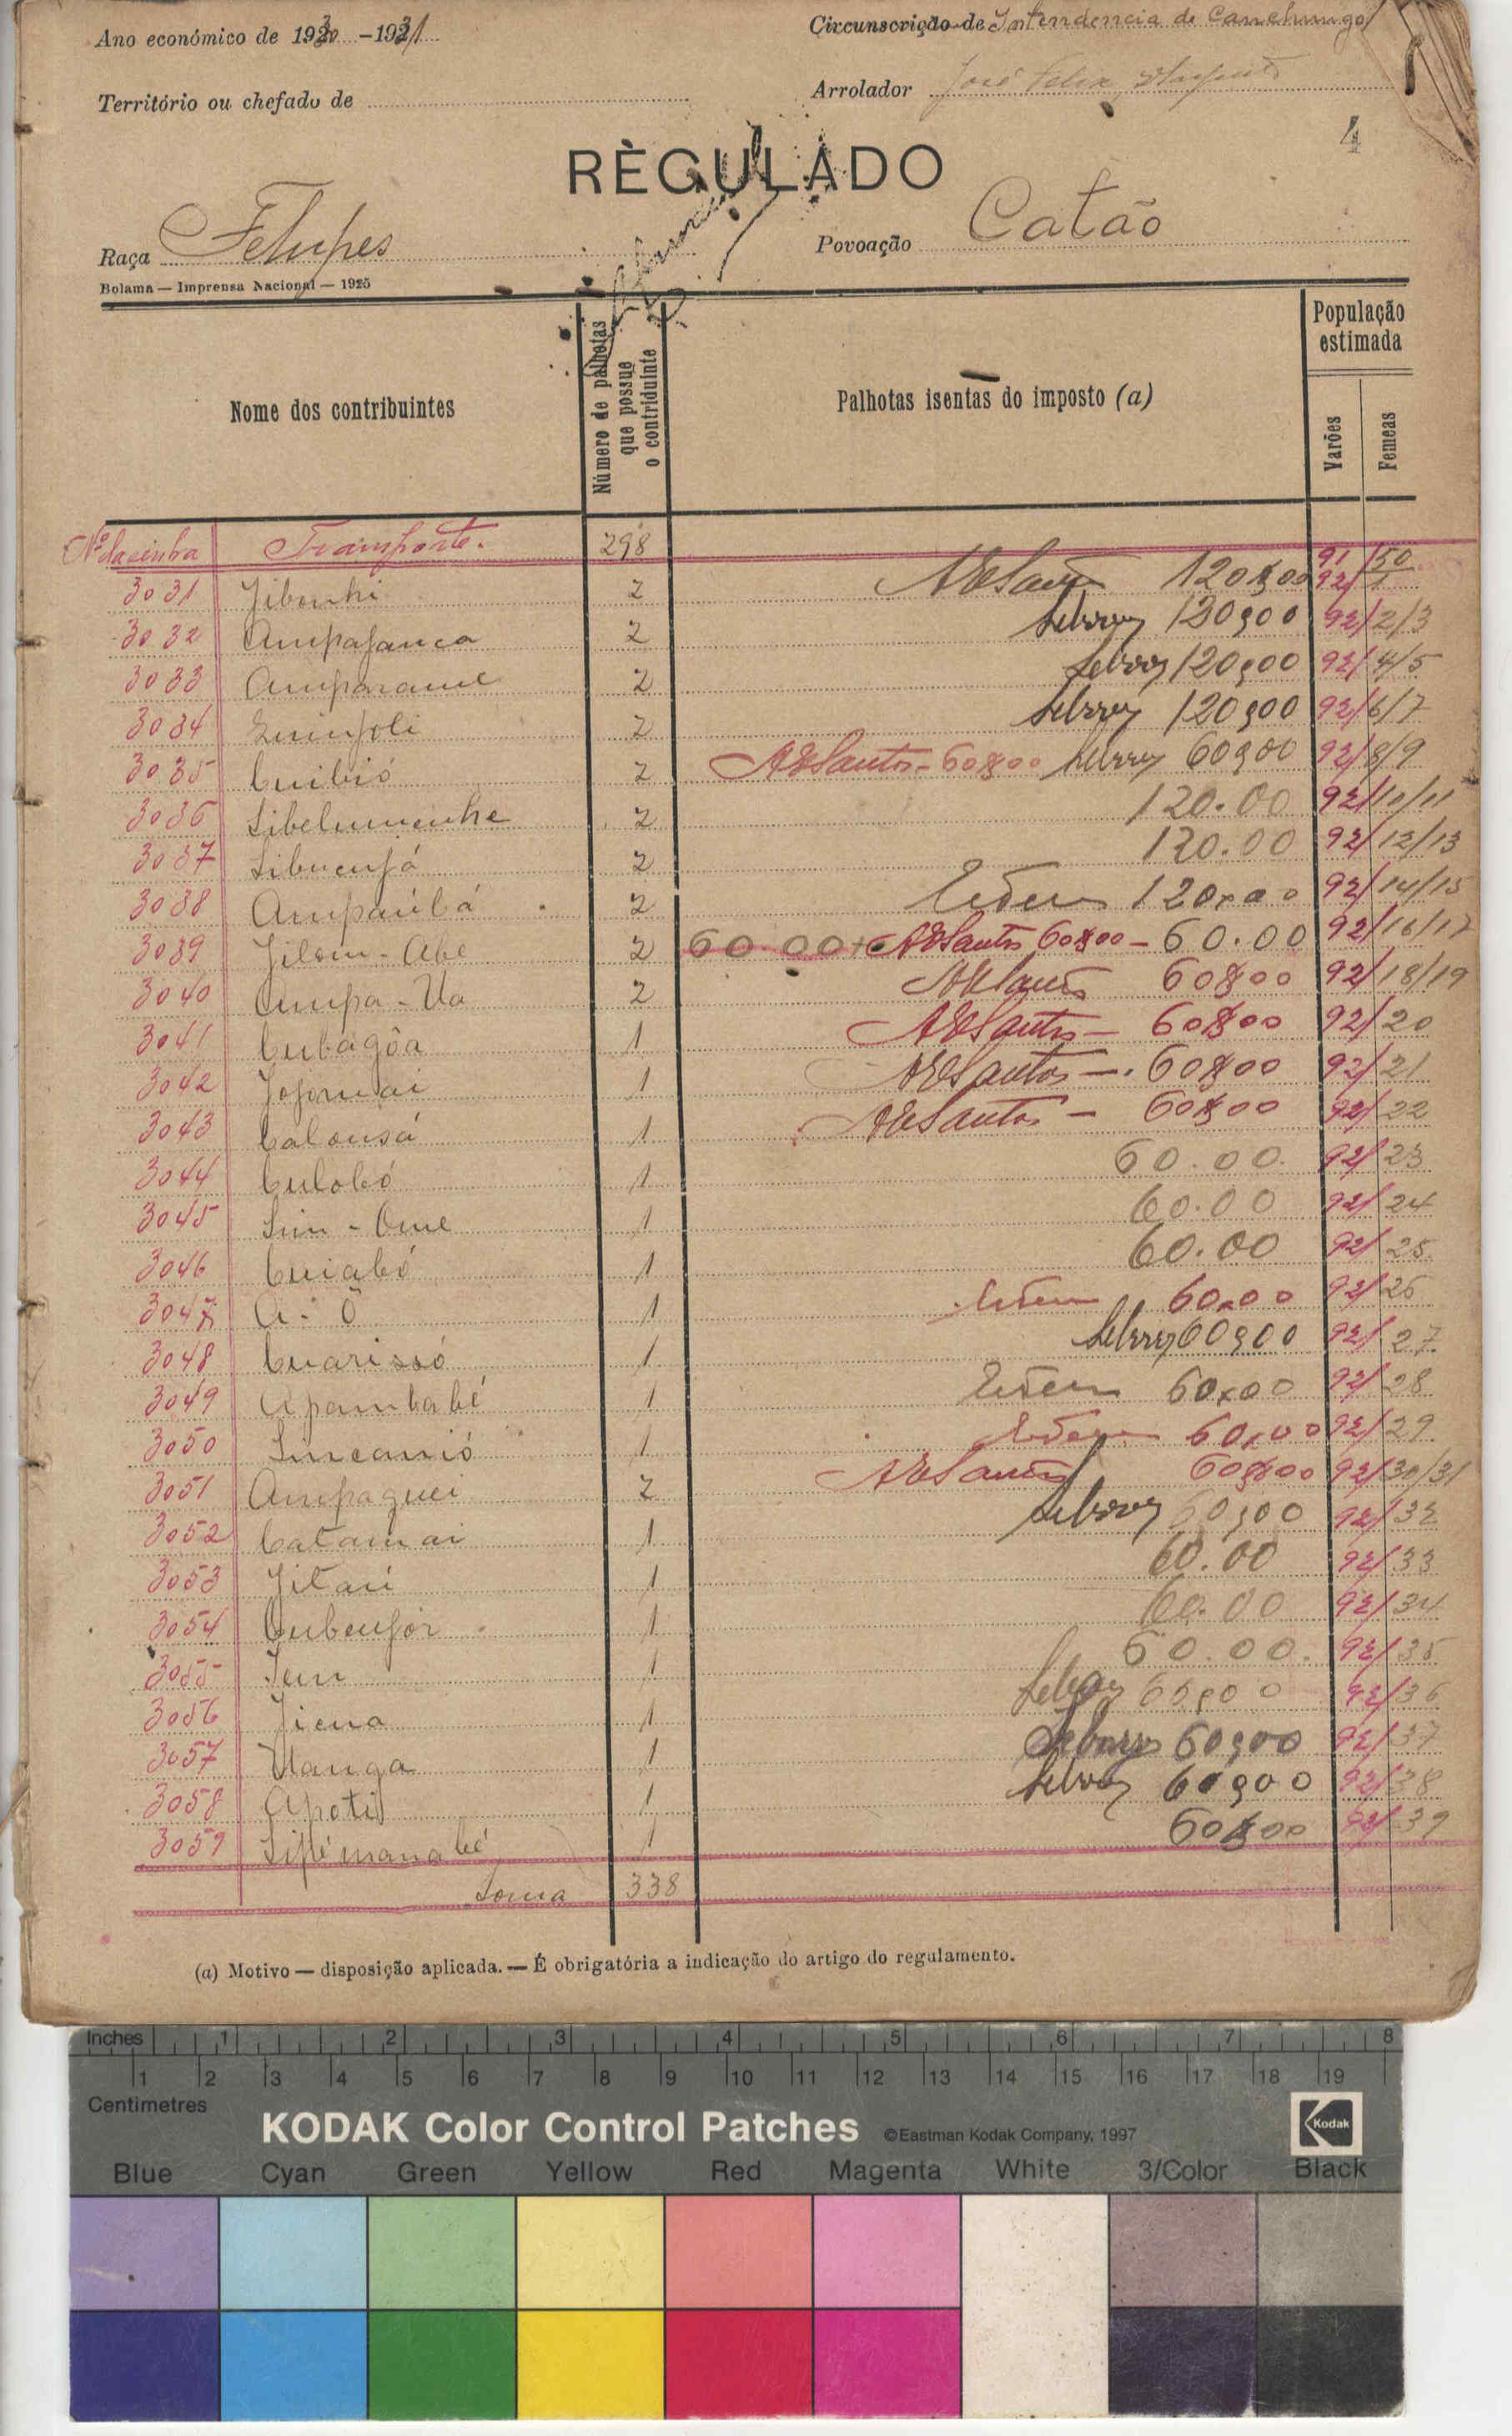 Ano económico de 1930 -1931 Circunscrição de Intendencia de Canchungo
Território ou chefado de Arrolador José Felix
4
RÈGULADO
Raça Felupes Povoação Catão
Bolama — Imprensa Nacional — 1925
Nome dos contribuintes Número de palhotas que possue o contriduinte Palhotas isentas do imposto (a) População estimada Varões Femeas
Transporte. 298 91/50
3031 Jibonhi 2 120$00 92/1
3032 Ampafanca 2 120$00 92/2/3
3033 Amparame 2 120$00 92/4/5
3034 2 120$00 92/6/7
3035 Cuibió 2 AESantos - 60$00 60$00 92/8/9
3036 Libelumenhe 2 120.00 92/10/11
3037 2 120.00 92/12/13
3038 Ampaúbá 2 120$00 92/14/15
3039 Jilom - Abe 2 60.00 AESantos 60$00 - 60.00 92/16/17
3040 Ampa - Ua 2 60$00 92/18/19
3041 Cubagôa 1 AESantos - 60$00 92/20
3042 1 AESantos - 60$00 92/21
3043 Calousá 1 AESantos - 60$00 92/22
3044 Culobó 1 60.00 92/23
3045 Sim - Ome 1 60.00 92/24
3046 Cuiabó 1 60.00 92/25
3047 A - Ô 1 60$00 92/26
3048 Cuarissó 1 60$00 92/27
3049 Apambabé 1 60$00 92/28
3050 1 60$00 92/29
3051 Ampaguei 2 AESantos 60$00 92/30/31
3052 Catamai 1 60$00 92/32
3053 Jitaú 1 60.00 92/33
3054 1 60.00 92/34
3055 1 60.00 92/35
3056 Jiena 1 60$00 92/36
3057 Uanga 1 60$00 92/37
3058 Apoti 1 60$00 92/38
3059 1 60$00 92/39
Soma 338
(a) Motivo — disposição aplicada. — É obrigatória a indicação do artigo do regulamento.
Inches 1 2 3 4 5 6 7 8
1 2 3 4 5 6 7 8 9 10 11 12 13 14 15 16 17 18 19
Centimetres
KODAK Color Control Patches ©Eastman Kodak Company, 1997 Kodak
Blue Cyan Green Yellow Red Magenta White 3/Color Black